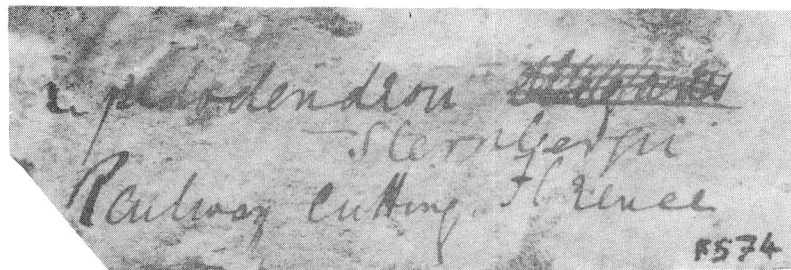 Lepidodendron
Sternbergii
Railway Cutting. Florence
F574